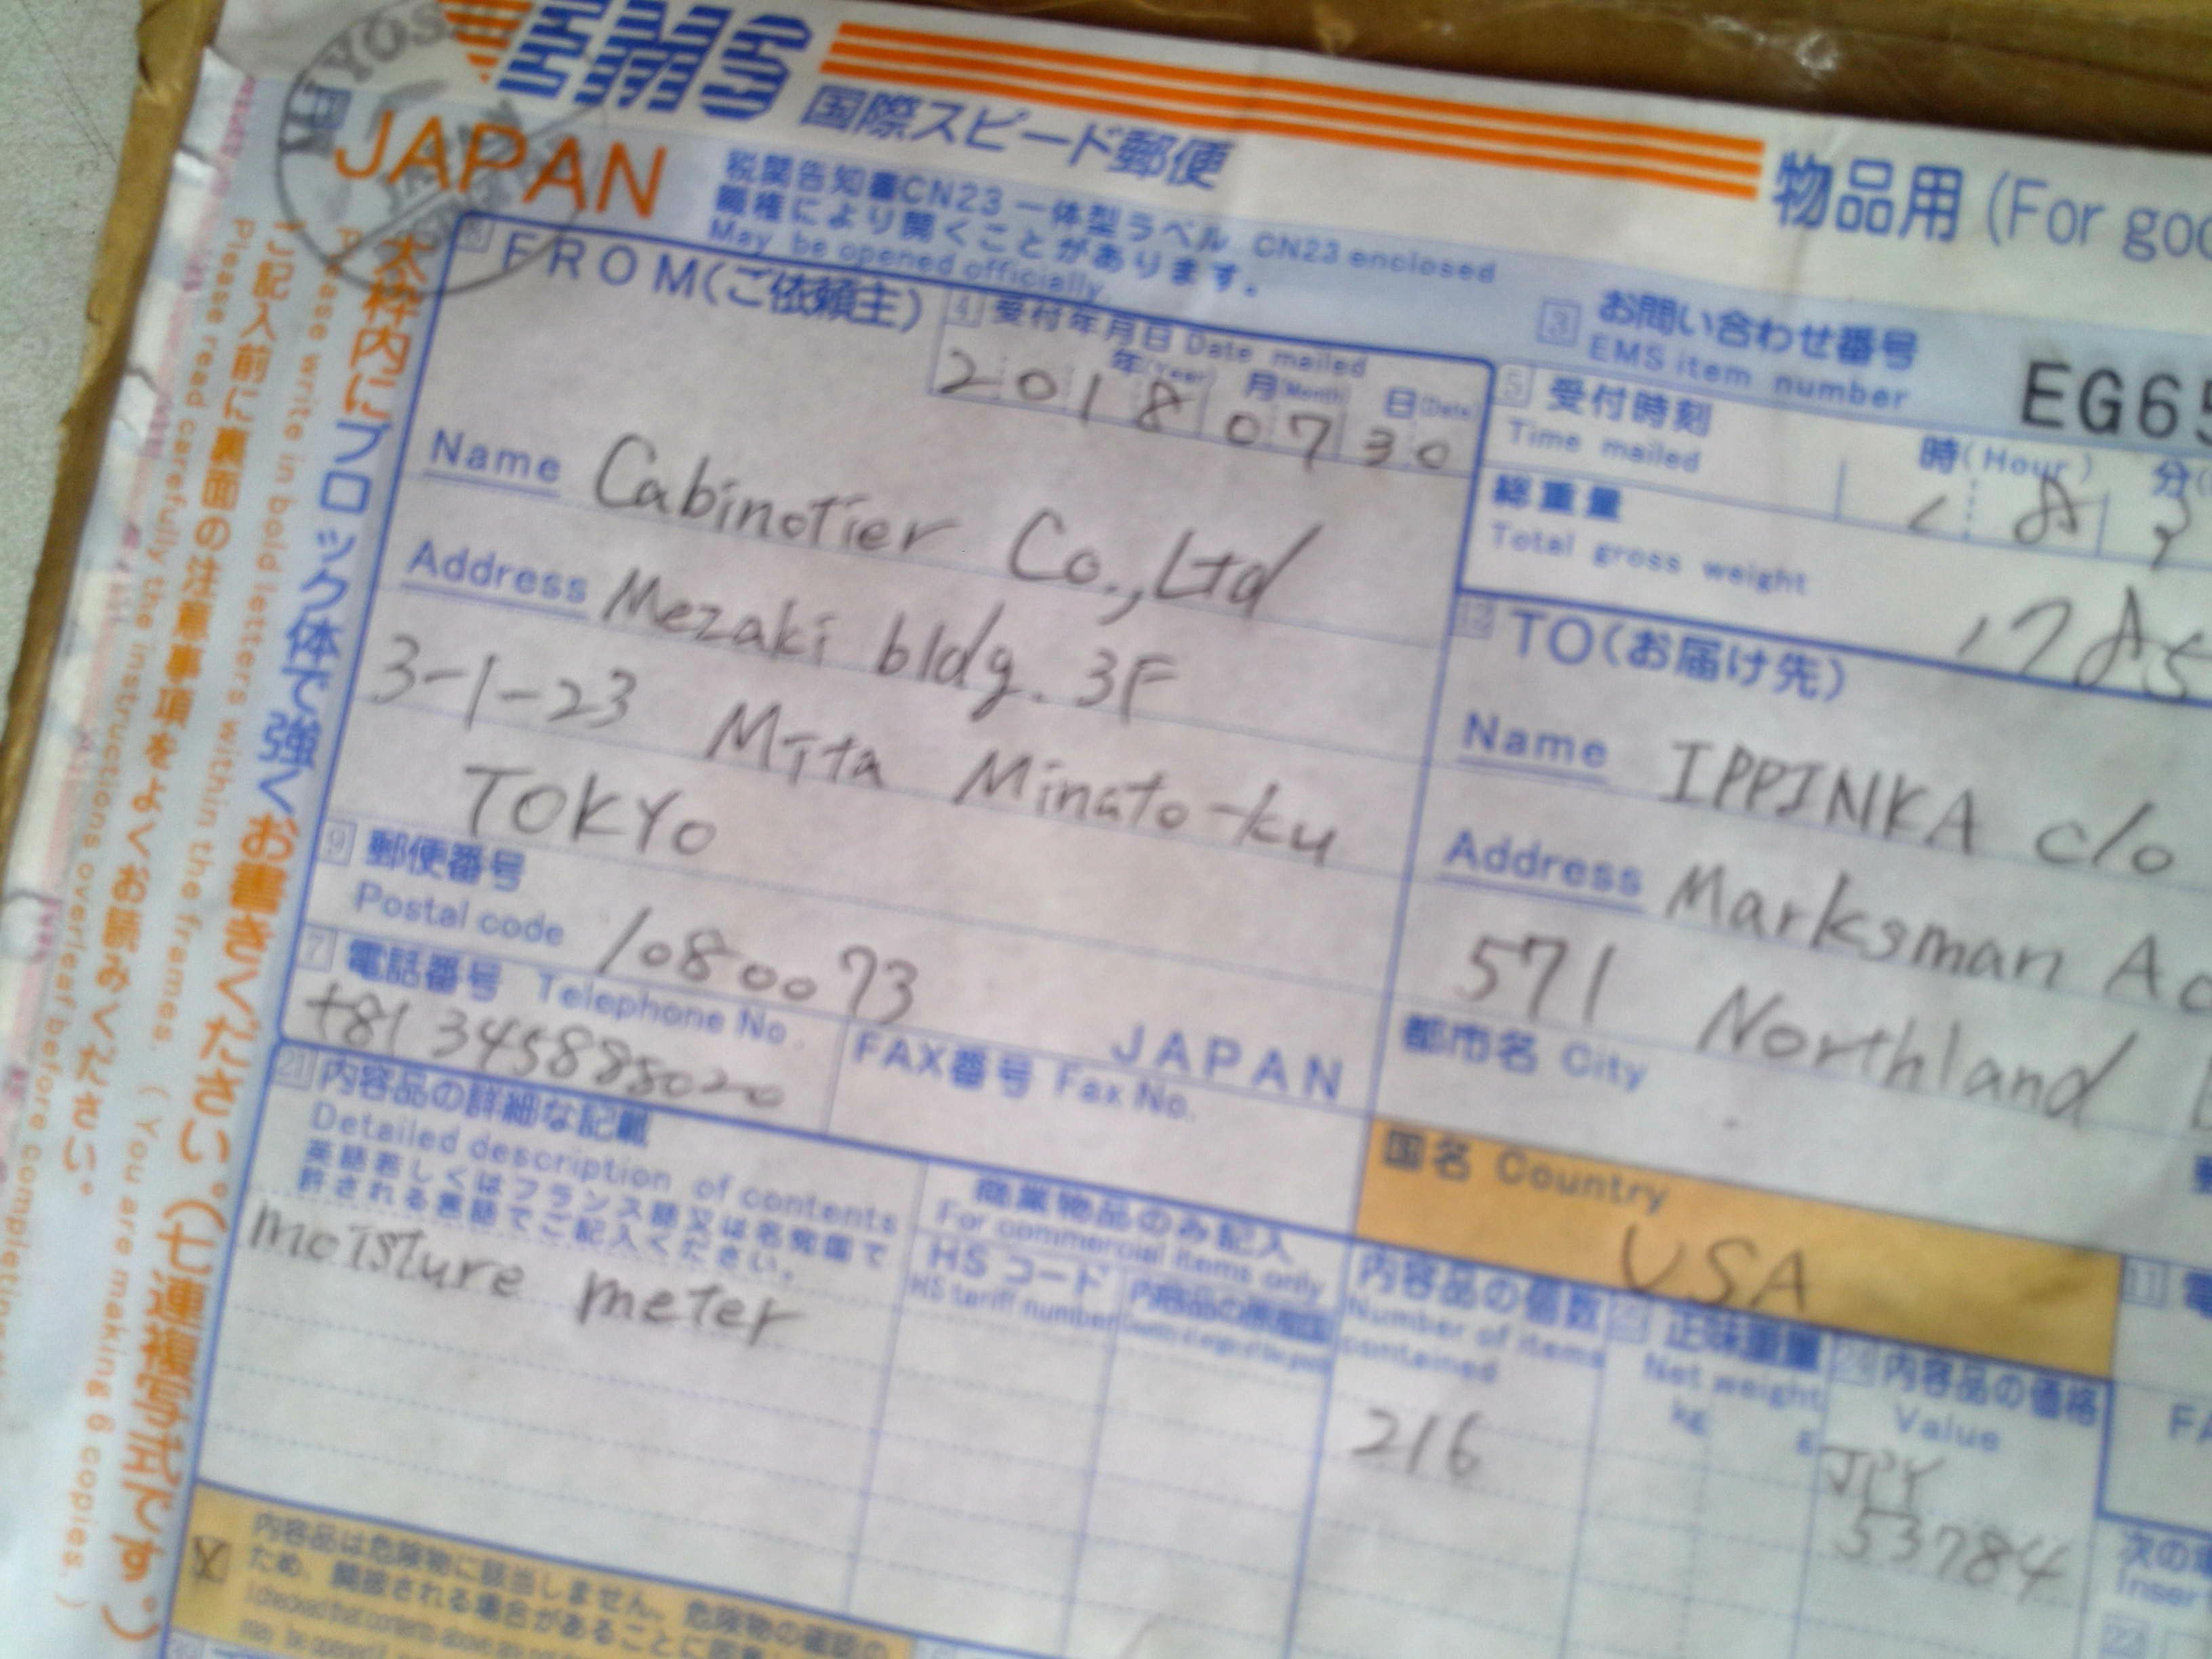 EMS
国際スピード郵便
JAPAN
物品用 (For goo
税関告知書CN23 一体型ラベル CN23 enclosed
職権により開くことがあります。
May be opened officially.
太枠内にブロック体で強くお書きください。(七連複写式です。)
Please write in bold letters within the frames. (You are making 6 copies.)
ご記入前に裏面の注意事項をよくお読みください。
Please read carefully the instructions overleaf before completing
8 FROM(ご依頼主)
4 受付年月日 Date mailed
年(Year) 月(Month) 日(Date)
2018 07 30
3 お問い合わせ番号
EMS item number
EG65
5 受付時刻
Time mailed
時(Hour) 分
18 3
総重量
Total gross weight
1785
Name Cabinotier Co., Ltd
Address Mezaki bldg. 3F
3-1-23 Mita Minato-ku
TOKYO
9 郵便番号
Postal code 1080073
JAPAN
7 電話番号 Telephone No.
FAX番号 Fax No.
12 TO(お届け先)
Name IPPINKA c/o
Address Marksman Ac
571 Northland
都市名 City
国名 Country
USA
21 内容品の詳細な記載
Detailed description of contents
英語若しくはフランス語又は名宛国で
許される言語でご記入ください。
moisture meter
商業物品のみ記入
For commercial items only
HSコード
HS tariff number
内容品の原産国
内容品の個数
Number of items
contained
216
正味重量
Net weight
kg g
24 内容品の価格
Value
JPY
53784
11 電
FA
次の
Inser
22
内容品は危険物に該当しません。危険物の確認の
ため、開披される場合があることに同意